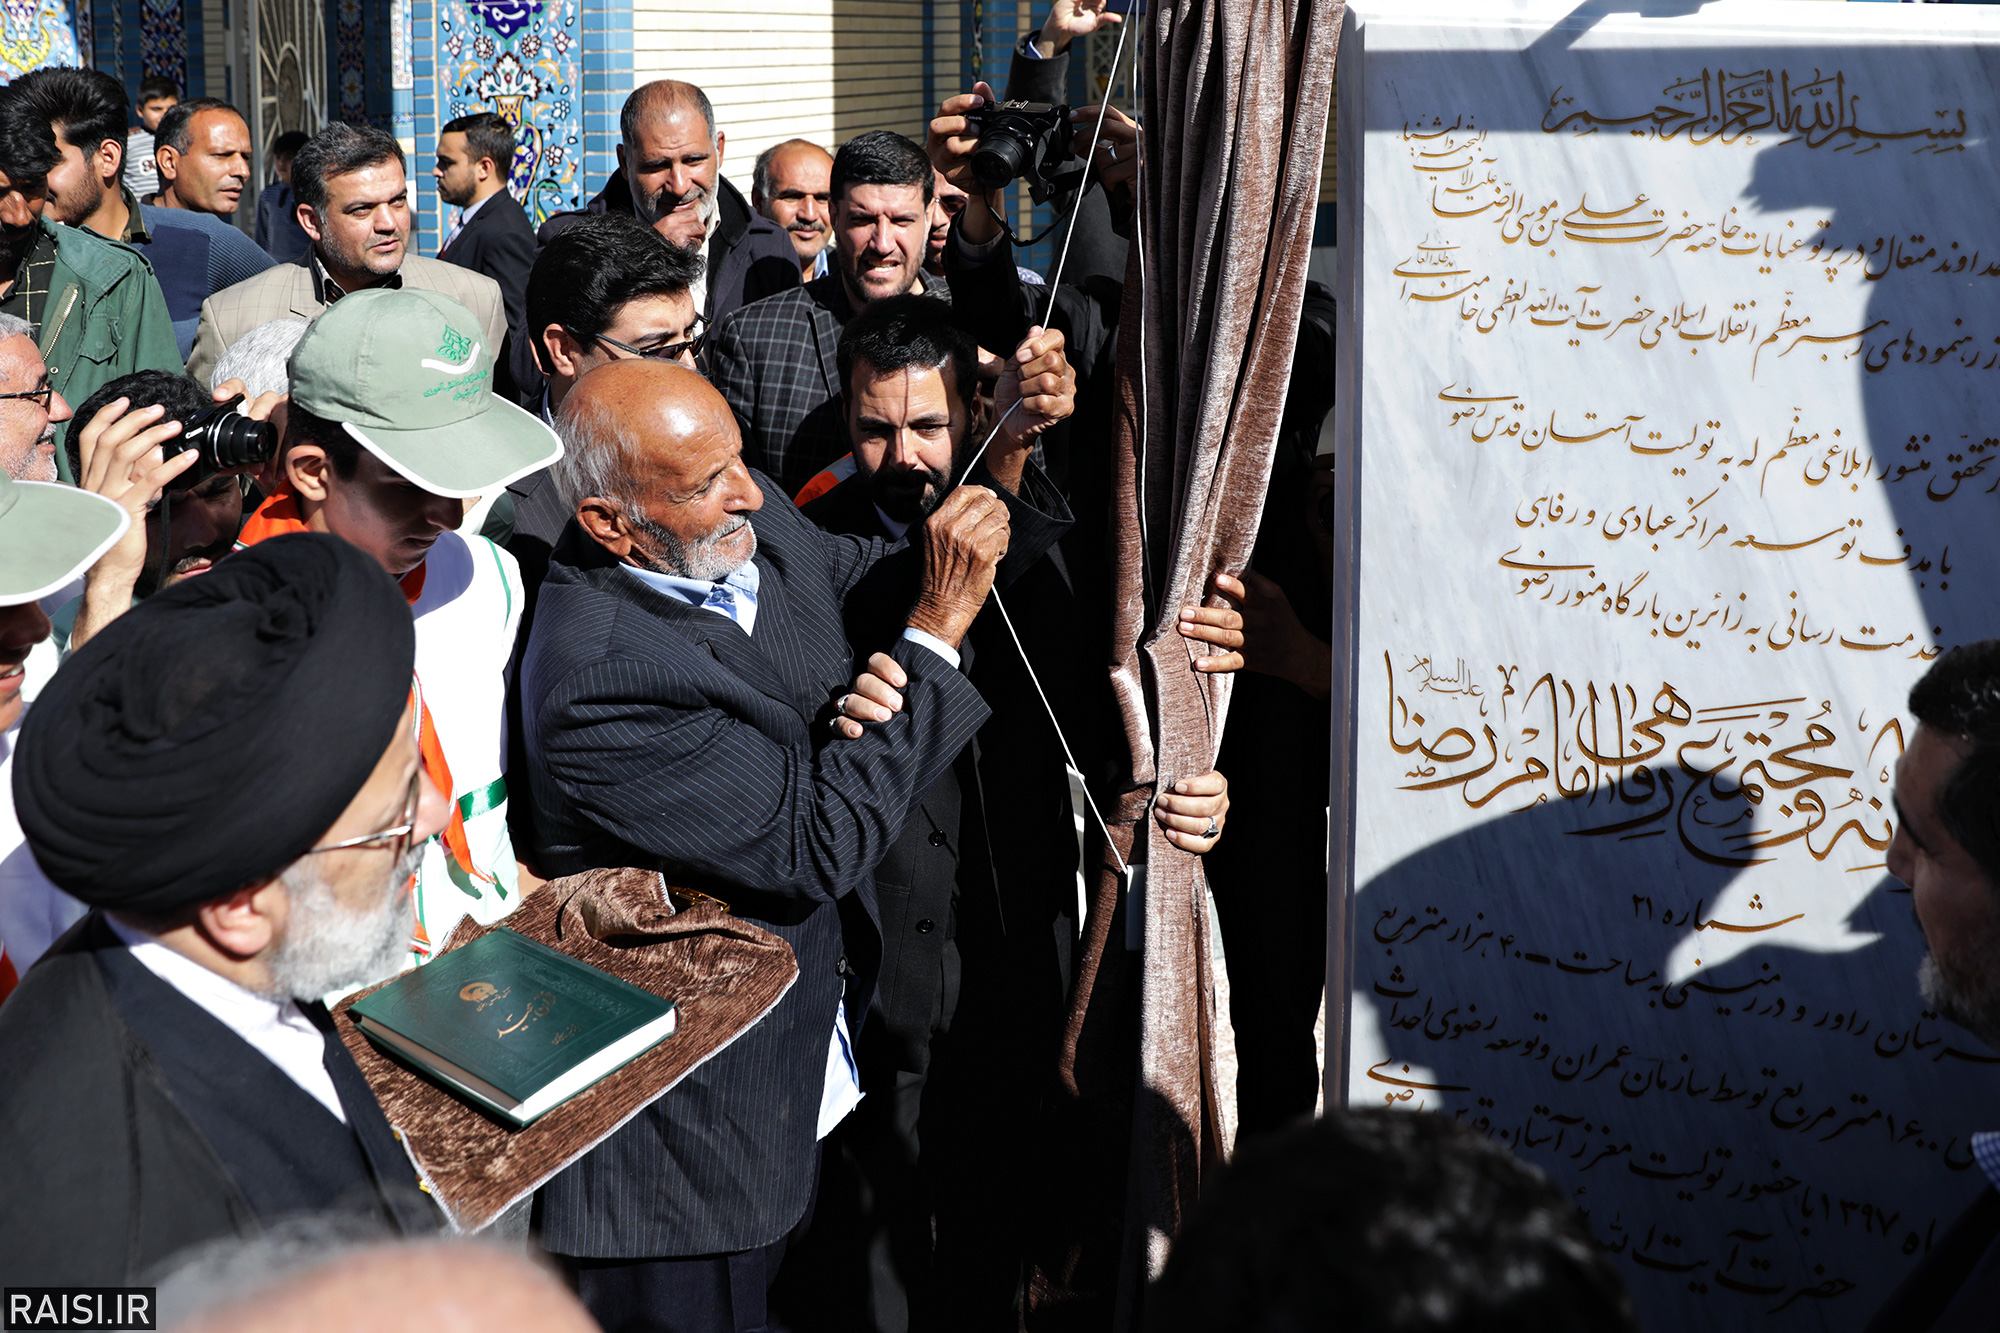 بسم الله الرحمن الرحیم
خداوند متعال و در پرتو عنایات خاصه حضرت علی بن موسی الرضا
علیه آلاف
التحیه والثناء
از رهنمودهای رهبر معظم انقلاب اسلامی حضرت آیت الله العظمی خامنه ای
مدظله العالی
تحقق منشور ابلاغی معظم له به تولیت آستان قدس رضوی
با هدف توسعه مراکز عبادی و رفاهی
و خدمت رسانی به زائرین بارگاه منور رضوی
علیه السلام
و مجتمع رفاهی امام رضا
شماره ۲۱
راور و در زمینی به مساحت ۴۰۰۰۰ هزار متر مربع
۱۶۰۰ متر مربع توسط سازمان عمران و توسعه رضوی احداث
۱۳۹۷ با حضور تولیت معزز آستان قدس رضوی
حضرت آیت الله
قرآن مجید
RAISI.IR